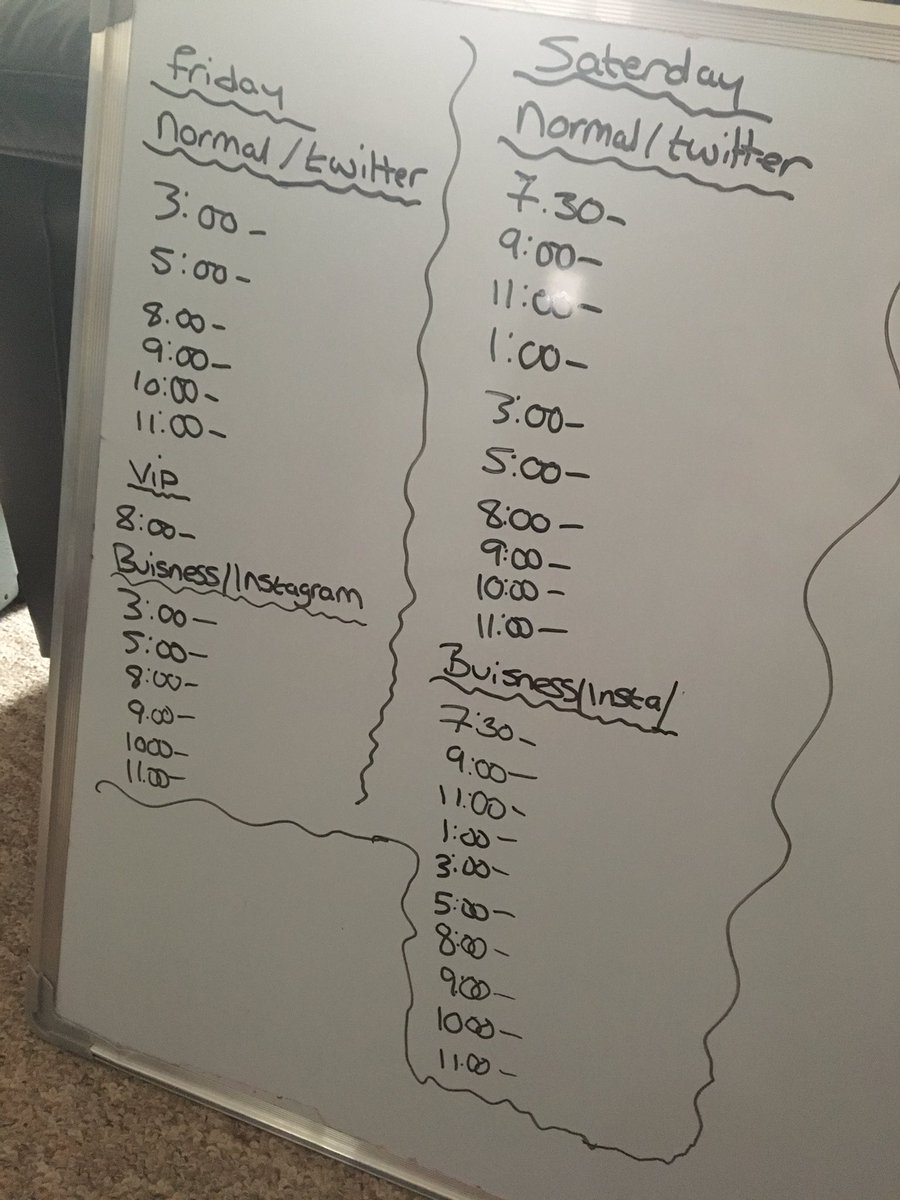 friday
Normal/twitter
3:00-
5:00-
8.00-
9:00-
10:00-
11:00-
Vip
8:00-
Buisness/Instagram
3:00-
5:00-
8:00-
9.00-
1000-
11.00-
Saterday
Normal/twitter
7.30-
9:00-
11:00-
1:00-
3:00-
5:00-
8:00-
9:00-
10:00-
11:00-
Buisness/Insta/
7:30-
9:00-
11:00-
1:00-
3:00-
5:00-
8:00-
9:00-
1000-
11.00-